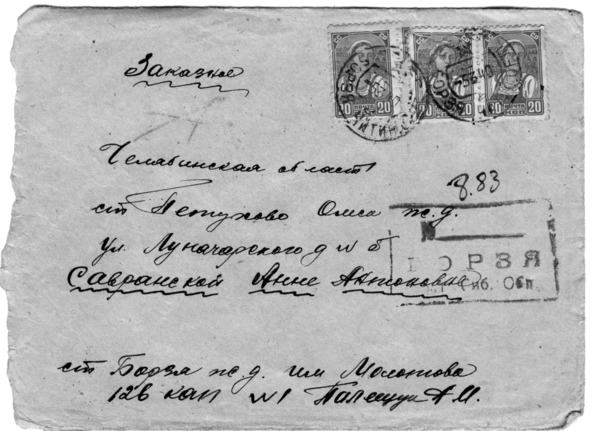 20 20 20
Заказное
Челябинская область
8.83
ст Петухово Омск ж.д.
ул. Луначарского д № 5
БОРЗЯ
Савранской Анне Антоновне
Обл.
ст Борзя ж д. им Молотова
12в кап №1 Палещук А.М.